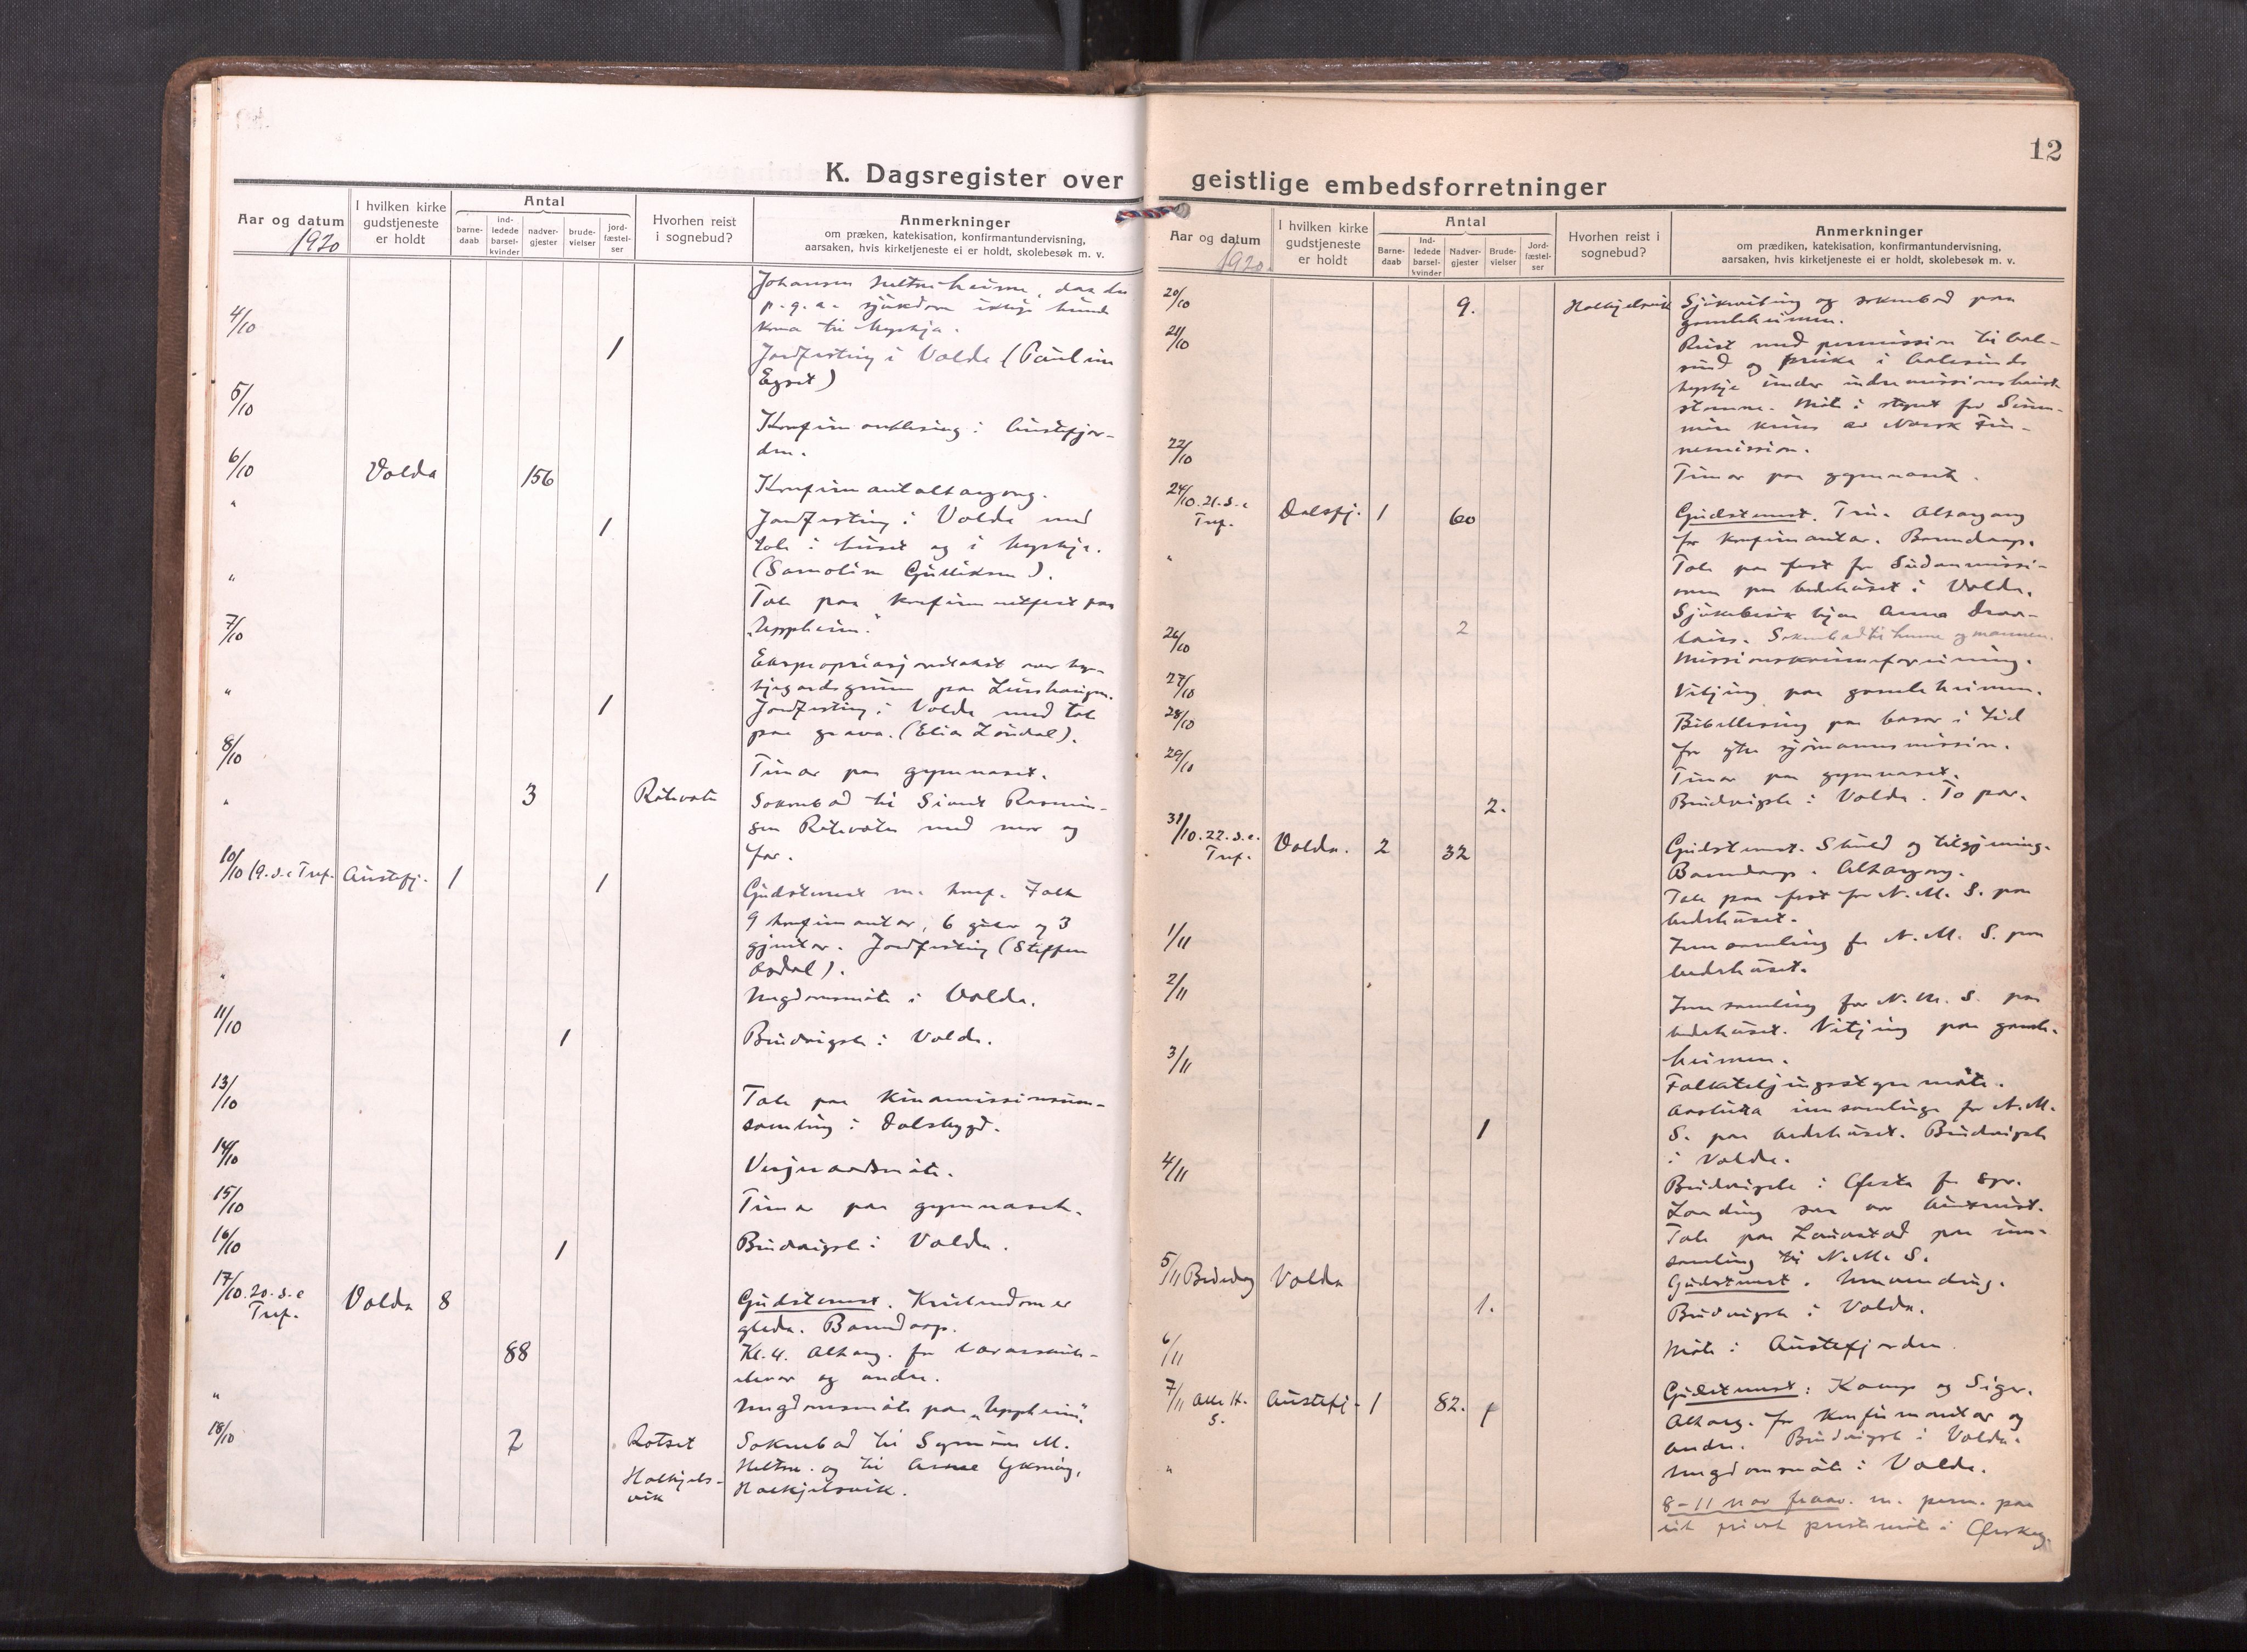 K. Dagsregister over
Aar og datum
1920
I hvilken kirke
gudstjeneste
er holdt
Antal
barne-
daab
ind-
ledede
barsel-
kvinder
nadver-
gjester
brude-
vielser
jord-
fæstel-
ser
Hvorhen reist
i sognebud?
Anmerkninger
om præken, katekisation, konfirmantundervisning,
aarsaken, hvis kirketjeneste ei er holdt, skolebesøk m. v.
Johansen
p. g. a. sjukdom ikkje kunde
koma til kyrkja.
4/10 1 Jordfesting i Volda (Pauline
Egset)
5/10 Konfirmantlesing i Austefjor-
den.
6/10 Volda 156 Konfirmantaltargong.
" 1 Jordfesting i Volda med
tale i huset og i kyrkja.
(Samoline Gulliksen).
" Tale paa konfirmantfest paa
"Uppheim".
7/10 Ekspropriasjonstakst over kyr-
kjegardsgrunn paa
" 1 Jordfesting i Volda med tale
paa grava. (Elias Løndal).
8/10 Timar paa gymnaset.
" 3 Røtevatn Soknebod til Sivert Rasmus-
sen Røtevatn med mor og
far.
10/10 19. s. e Tref. Austefj. 1 1 Gudstenest m. konf. Falk
9 konfirmantar, 6 gutar og 3
gjentor. Jordfesting (Steffen
Osdal).
" Ungdomsmøte i Volda.
11/10 1 Brudvigsle i Volda.
13/10 Tale paa Kinamissionsinn-
samling i Dalsbygd.
14/10 Verjeraadsmøte.
15/10 Timar paa gymnaset.
16/10 1 Brudvigsle i Volda.
17/10. 20. s. e
Tref. Volda 8 Gudstenest. Kristendom er
glede. Barnedaap.
88 Kl. 4. Altarg. for lærarskule-
elevar og andre.
" Ungdomsmøte paa "Uppheim".
18/10 2 Rotset Soknebod til M.
Heltne. og til
Halkjels-
vik Halkjelsvik.
12
geistlige embedsforretninger
Aar og datum
1920.
I hvilken kirke
gudstjeneste
er holdt
Antal
Barne-
daab
Ind-
ledede
barsel-
kvinder
Nadver-
gjester
Brude-
vielser
Jord-
fæstel-
ser
Hvorhen reist i
sognebud?
Anmerkninger
om prædiken, katekisation, konfirmantundervisning,
aarsaken, hvis kirketjeneste ei er holdt, skolebesøk m. v.
20/10 9. Halkjelsvik Sjukevitjing og soknebod paa
gamleheimen.
21/10 Reist med permission til Aale-
sund og preika i Aalesunds
kyrkje under indremissions
stemna. Møte i styret for Sunn-
møre krins av Norsk Fin-
nemission.
22/10 Timar paa gymnaset.
24/10. 21. s. e
Tref. Dalsfj. 1 60 Gudstenest. Tru. Altargang
for konfirmantar. Barnedaap.
" Tale paa fest for Sudanmissi-
onen paa bedehuset i Volda.
Sjukebesøk hjaa Anna
2 Soknebod til henne og mannen.
26/10 Missionskvinneforeining.
27/10 Vitjing paa gamleheimen.
28/10 Bibellesing paa basar i Lid
for ytre sjømannsmission.
29/10 Timar paa gymnaset.
2. Brudvigsle i Volda. To par.
31/10. 22. s. e.
Tref. Volda. 2 32 Gudstenest. Skuld og tilgjeving.
Barnedaap. Altargong.
Tale paa fest for N. M. S. paa
bedehuset.
1/11 Innsamling for N. M. S. paa
bedehuset.
2/11 Innsamling for N. M. S. paa
bedehuset. Vitjing paa gamle-
heimen.
3/11 Folketeljingsstyremøte.
Avslutta innsamlinga for N. M.
S. paa bedehuset. Brudvigsle
1 i Volda.
4/11 Brudvigsle i Ørsta for spr.
Landing som var
Tale paa Lauvstad paa inn-
samling til N. M. S.
5/11 Bededag Volda Gudstenest. Umvending.
1. Brudvigsle i Volda.
6/11 Møte i Austefjorden.
7/11 Alle H.
S. Austefj. 1 82. 1 Gudstenest: Kamp og Siger.
Altarg. for konfirmantar og
andre. Brudvigsle i Volda.
" Ungdomsmøte i Volda.
8-11 nov fraav. m. perm. paa
eit privat prestemøte i